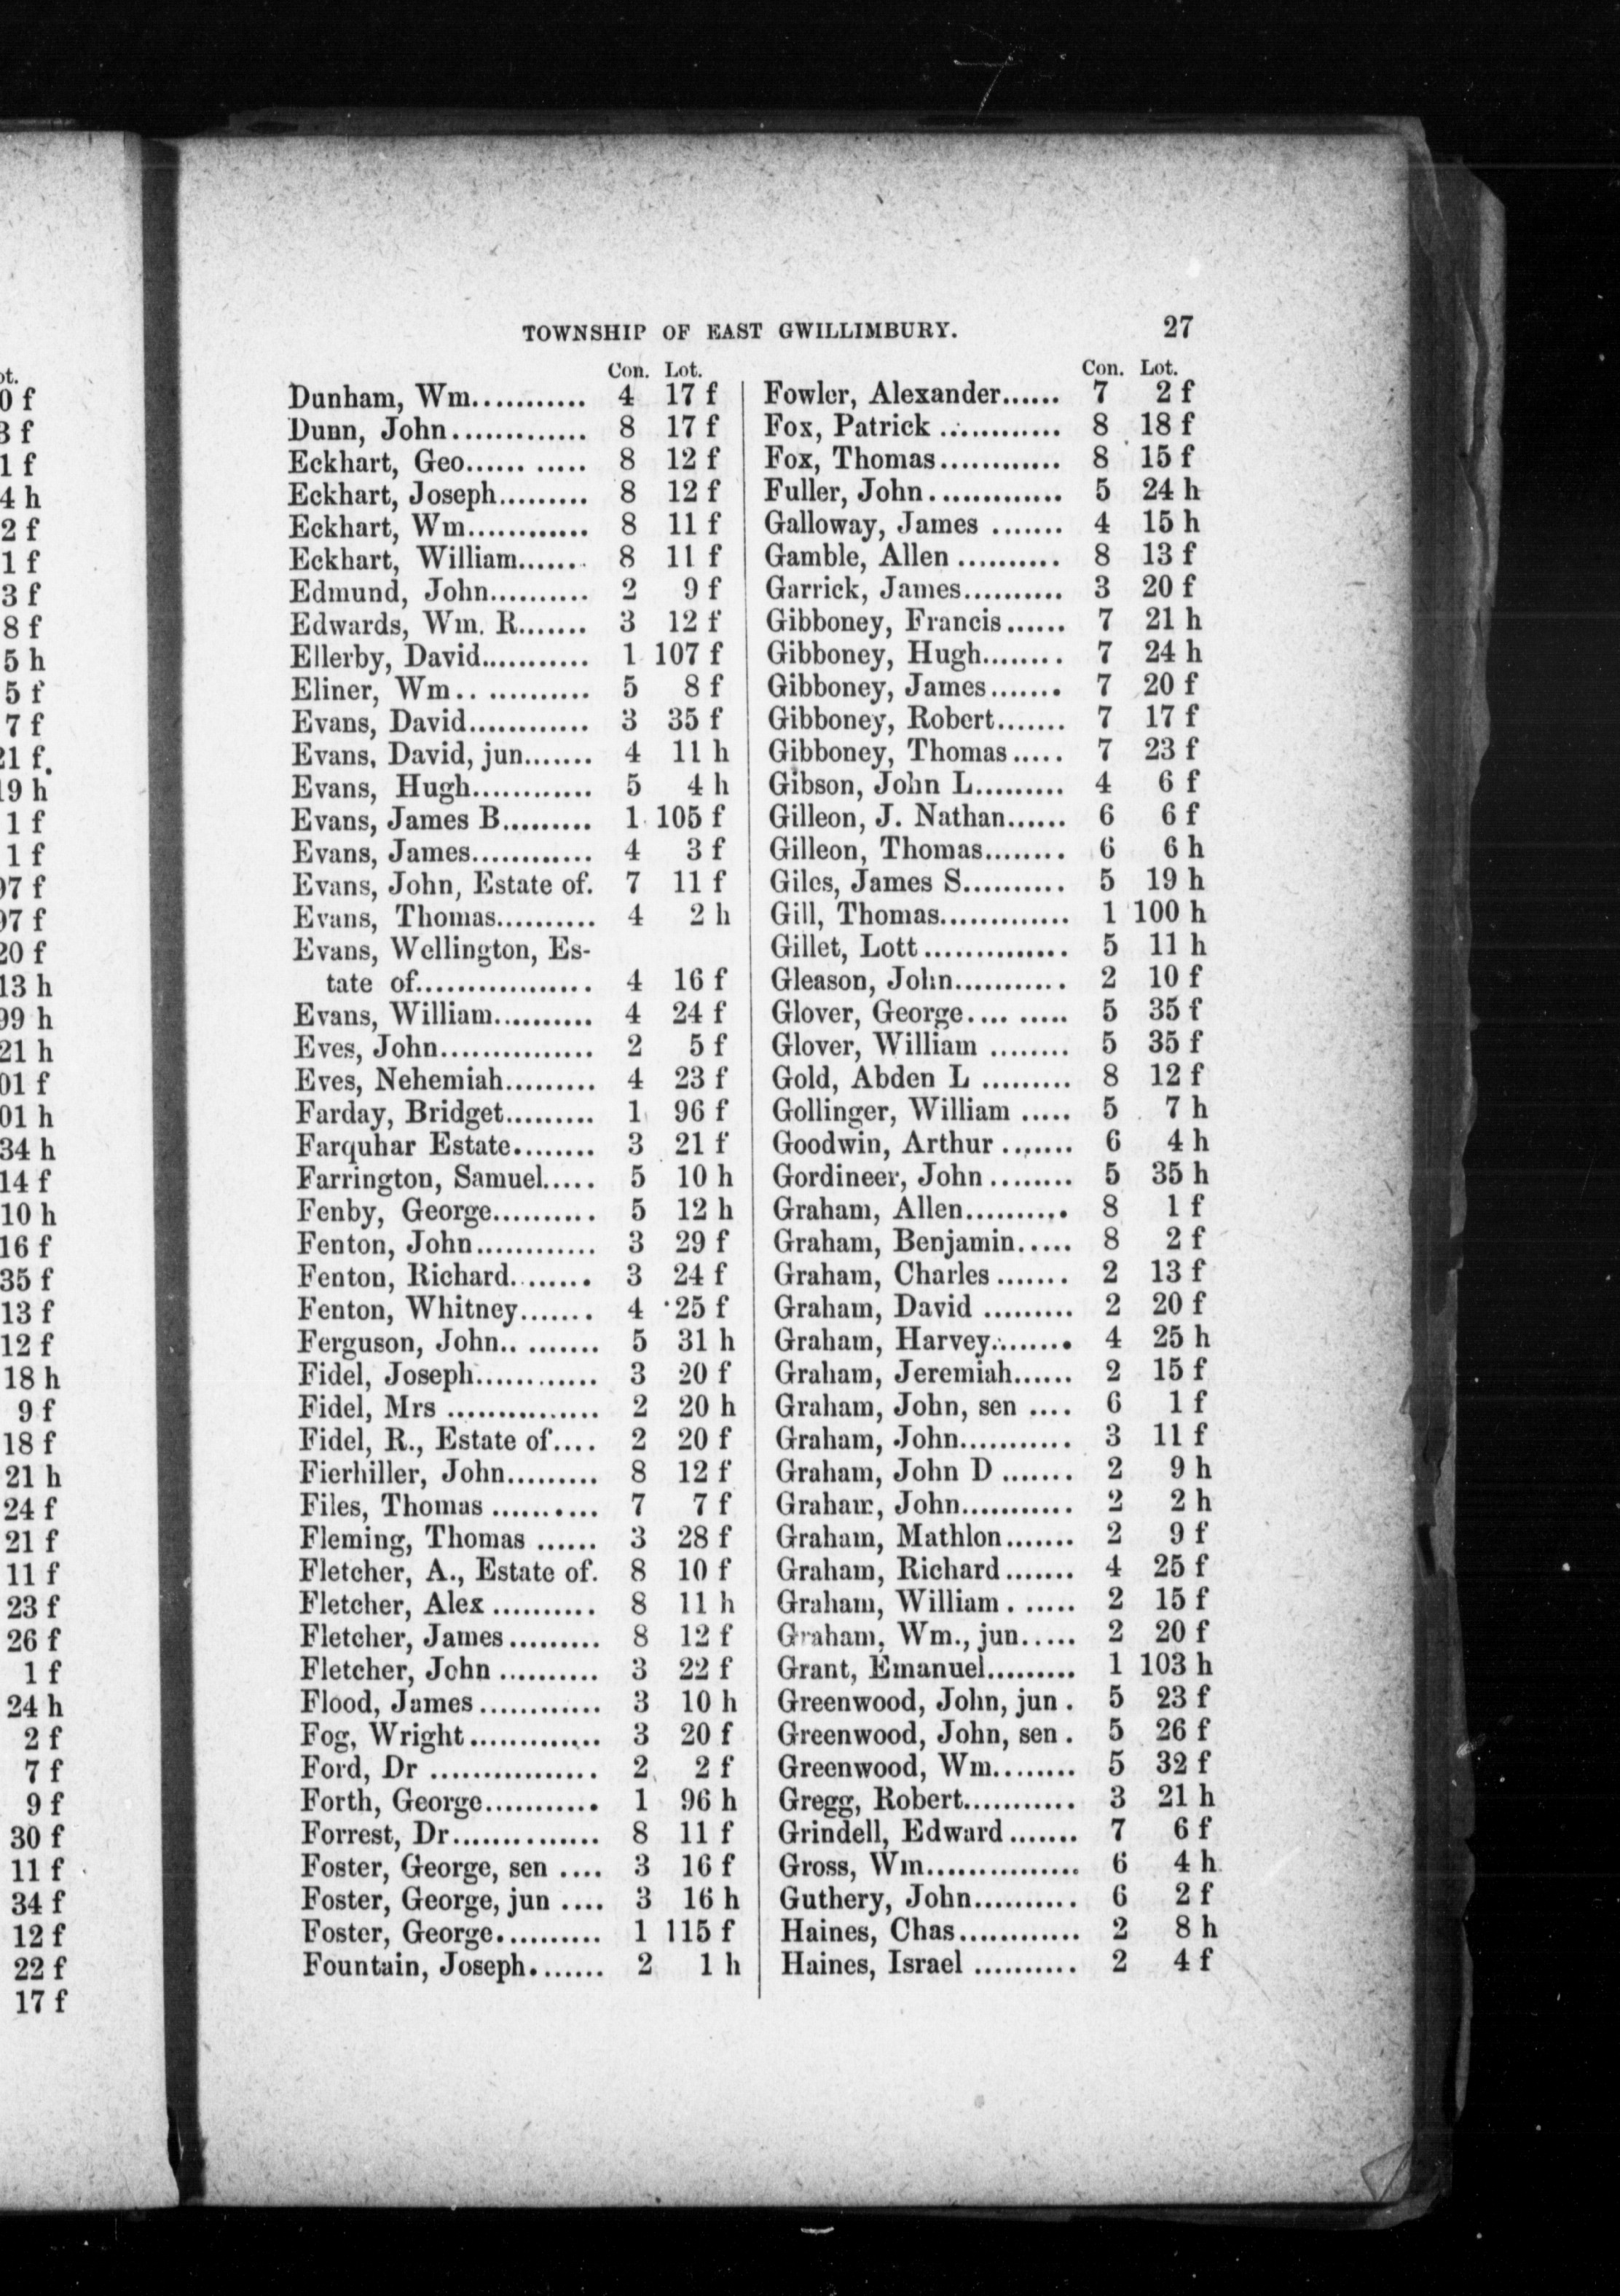 ot.
0 f
3 f
1 f
4 h
2 f
1 f
3 f
8 f
5 h
5 f
7 f
21 f.
19 h
1 f
1 f
97 f
97 f
20 f
13 h
99 h
21 h
01 f
01 h
34 h
14 f
10 h
16 f
35 f
13 f
12 f
18 h
9 f
18 f
21 h
24 f
21 f
11 f
23 f
26 f
1 f
24 h
2 f
7 f
9 f
30 f
11 f
34 f
12 f
22 f
17 f
TOWNSHIP OF EAST GWILLIMBURY. 27
Con. Lot.
Dunham, Wm........... 4 17 f
Dunn, John............. 8 17 f
Eckhart, Geo...... ..... 8 12 f
Eckhart, Joseph......... 8 12 f
Eckhart, Wm............ 8 11 f
Eckhart, William....... 8 11 f
Edmund, John.......... 2 9 f
Edwards, Wm. R....... 3 12 f
Ellerby, David........... 1 107 f
Eliner, Wm.. .......... 5 8 f
Evans, David............ 3 35 f
Evans, David, jun....... 4 11 h
Evans, Hugh............ 5 4 h
Evans, James B......... 1 105 f
Evans, James............ 4 3 f
Evans, John, Estate of. 7 11 f
Evans, Thomas.......... 4 2 h
Evans, Wellington, Es-
tate of................. 4 16 f
Evans, William.......... 4 24 f
Eves, John............... 2 5 f
Eves, Nehemiah......... 4 23 f
Farday, Bridget......... 1 96 f
Farquhar Estate........ 3 21 f
Farrington, Samuel..... 5 10 h
Fenby, George.......... 5 12 h
Fenton, John............ 3 29 f
Fenton, Richard........ 3 24 f
Fenton, Whitney....... 4 25 f
Ferguson, John.. ....... 5 31 h
Fidel, Joseph............ 3 20 f
Fidel, Mrs ............... 2 20 h
Fidel, R., Estate of.... 2 20 f
Fierhiller, John......... 8 12 f
Files, Thomas .......... 7 7 f
Fleming, Thomas ...... 3 28 f
Fletcher, A., Estate of. 8 10 f
Fletcher, Alex .......... 8 11 h
Fletcher, James......... 8 12 f
Fletcher, John .......... 3 22 f
Flood, James............ 3 10 h
Fog, Wright............. 3 20 f
Ford, Dr ................ 2 2 f
Forth, George........... 1 96 h
Forrest, Dr.............. 8 11 f
Foster, George, sen .... 3 16 f
Foster, George, jun .... 3 16 h
Foster, George.......... 1 115 f
Fountain, Joseph....... 2 1 h
Con. Lot.
Fowler, Alexander...... 7 2 f
Fox, Patrick ............ 8 18 f
Fox, Thomas............ 8 15 f
Fuller, John............. 5 24 h
Galloway, James ....... 4 15 h
Gamble, Allen .......... 8 13 f
Garrick, James.......... 3 20 f
Gibboney, Francis...... 7 21 h
Gibboney, Hugh........ 7 24 h
Gibboney, James....... 7 20 f
Gibboney, Robert....... 7 17 f
Gibboney, Thomas..... 7 23 f
Gibson, John L......... 4 6 f
Gilleon, J. Nathan...... 6 6 f
Gilleon, Thomas........ 6 6 h
Giles, James S.......... 5 19 h
Gill, Thomas............. 1 100 h
Gillet, Lott.............. 5 11 h
Gleason, John........... 2 10 f
Glover, George.... ..... 5 35 f
Glover, William ........ 5 35 f
Gold, Abden L ......... 8 12 f
Gollinger, William ..... 5 7 h
Goodwin, Arthur ....... 6 4 h
Gordineer, John........ 5 35 h
Graham, Allen.......... 8 1 f
Graham, Benjamin..... 8 2 f
Graham, Charles....... 2 13 f
Graham, David ......... 2 20 f
Graham, Harvey........ 4 25 h
Graham, Jeremiah...... 2 15 f
Graham, John, sen .... 6 1 f
Graham, John........... 3 11 f
Graham, John D ....... 2 9 h
Graham, John........... 2 2 h
Graham, Mathlon....... 2 9 f
Graham, Richard....... 4 25 f
Graham, William. ..... 2 15 f
Graham, Wm., jun..... 2 20 f
Grant, Emanuel......... 1 103 h
Greenwood, John, jun . 5 23 f
Greenwood, John, sen . 5 26 f
Greenwood, Wm........ 5 32 f
Gregg, Robert........... 3 21 h
Grindell, Edward....... 7 6 f
Gross, Wm............... 6 4 h
Guthery, John.......... 6 2 f
Haines, Chas............ 2 8 h
Haines, Israel .......... 2 4 f